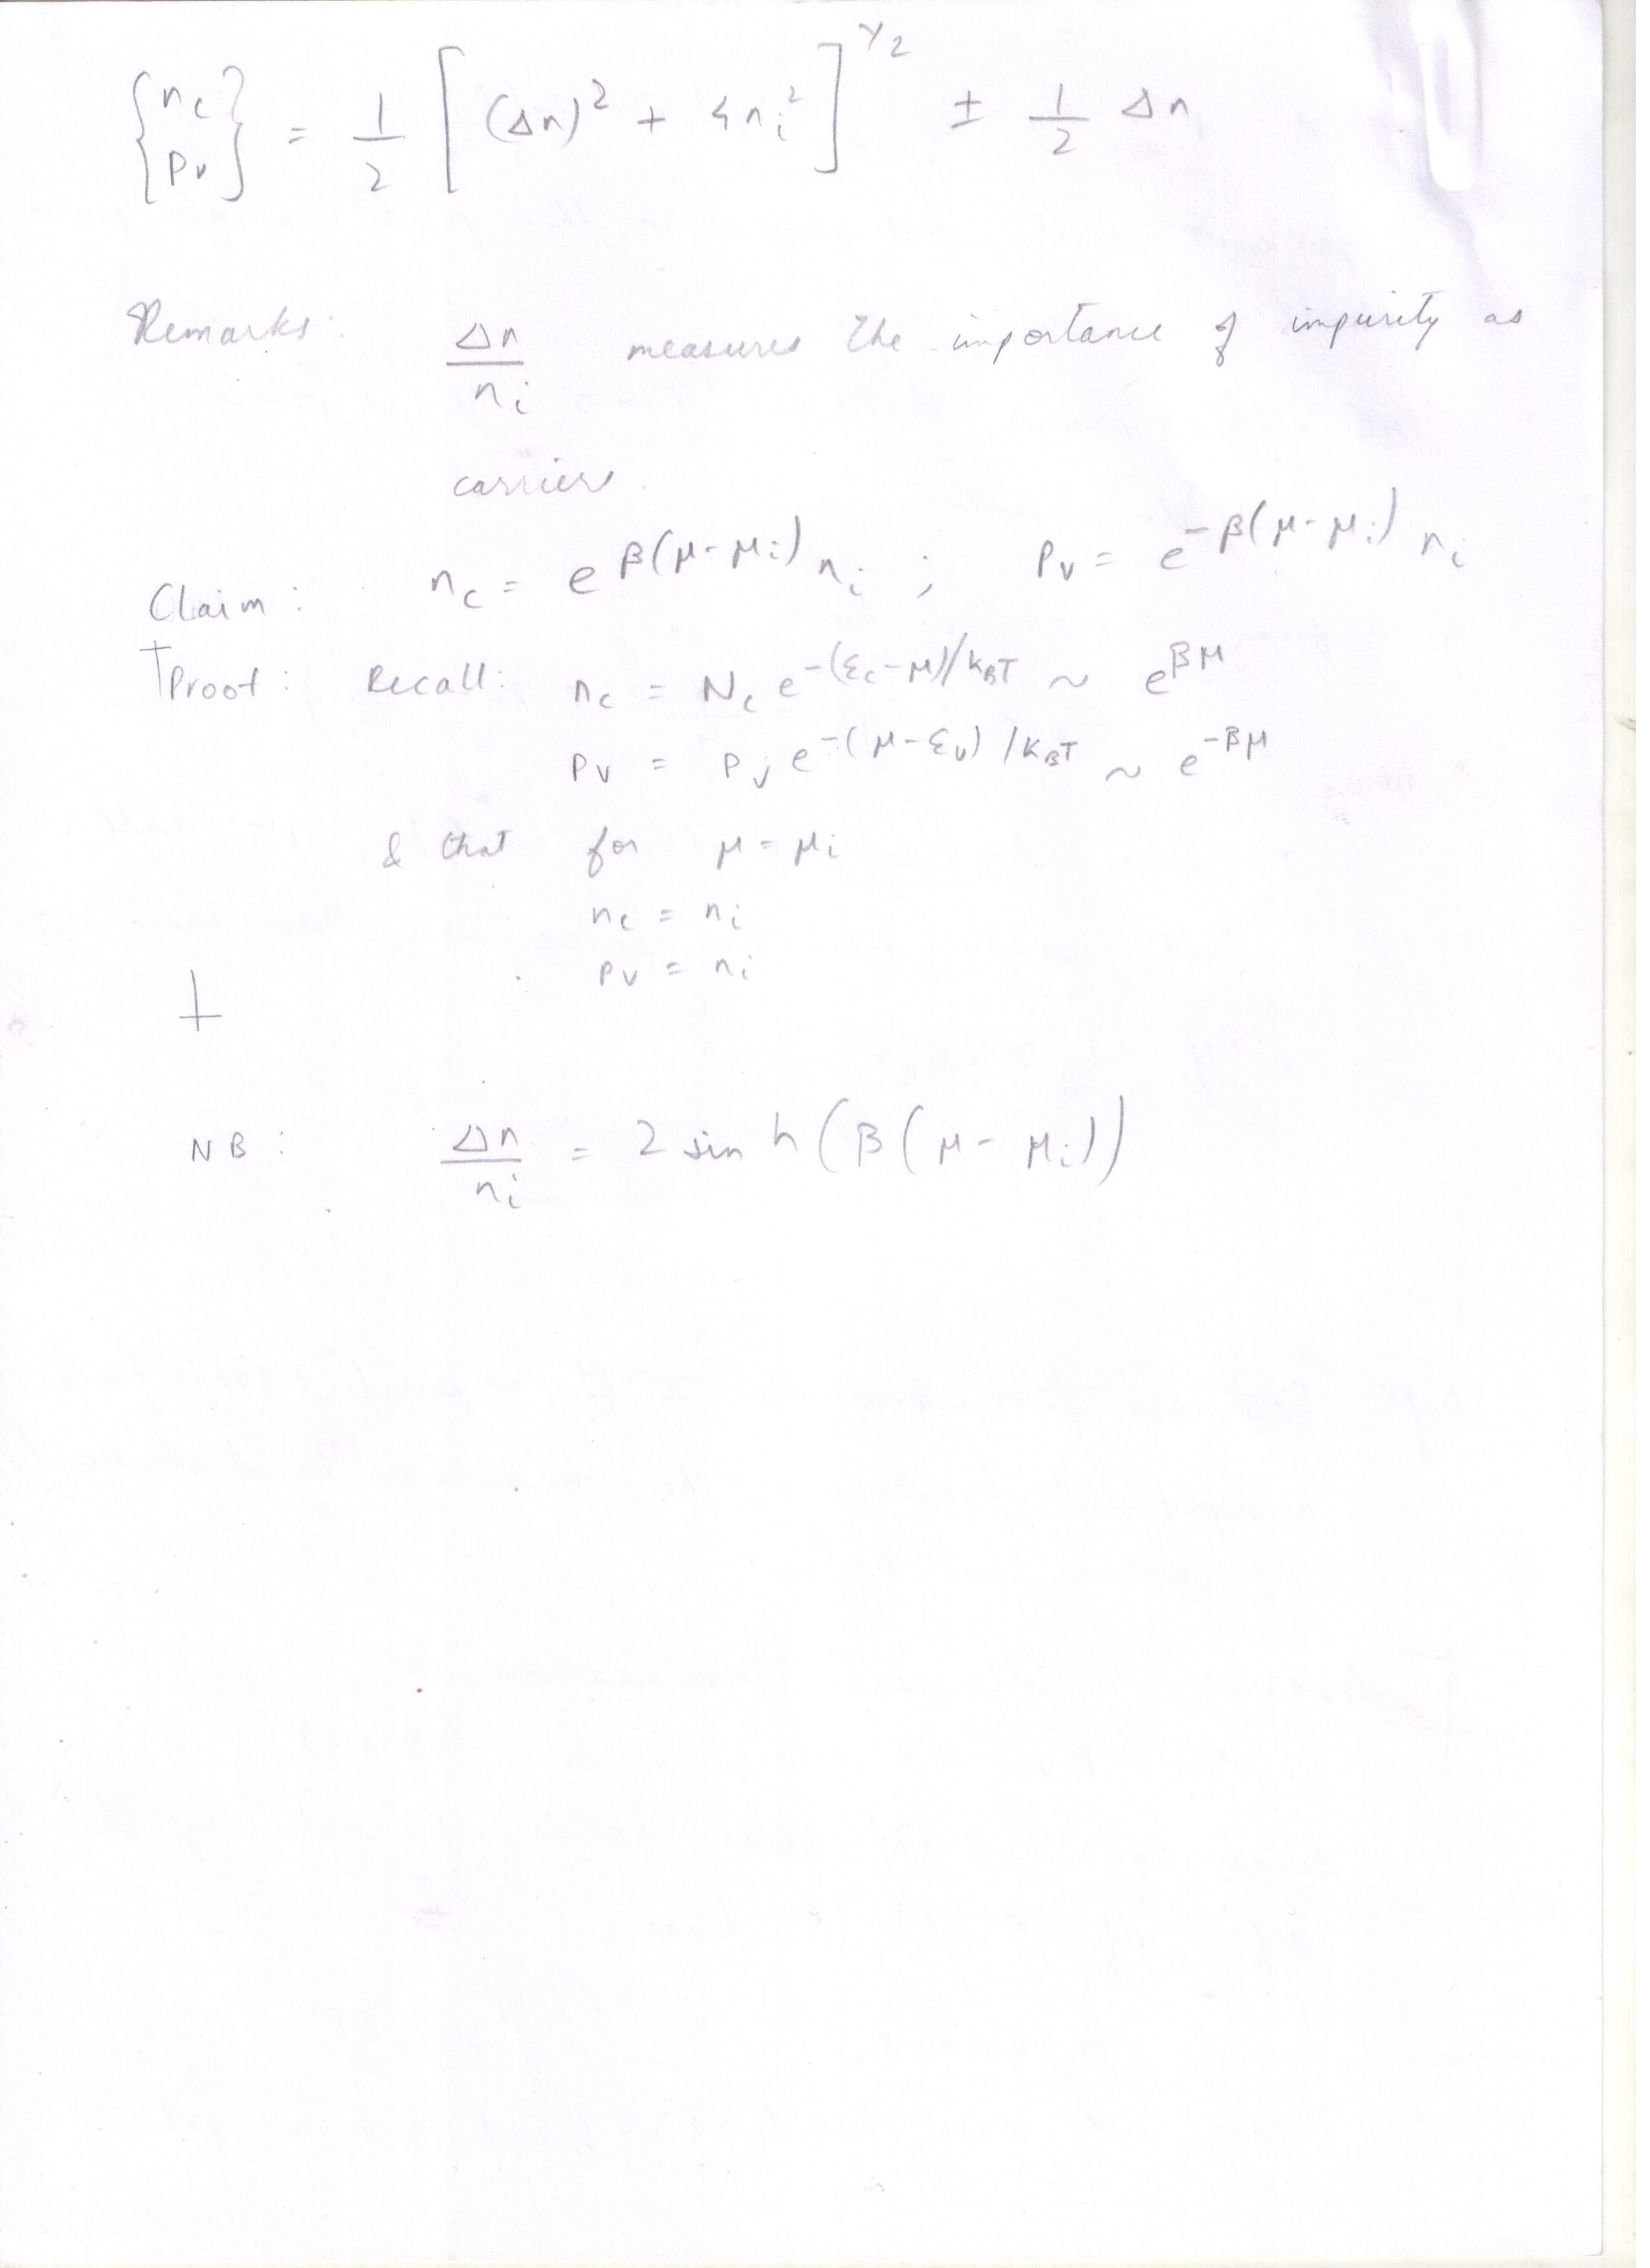 {n_c p_v} = 1/2 [(Δn)² + 4n_i²]^{1/2} ± 1/2 Δn
Remarks: Δn/n_i measures the importance of impurity as
carriers.
Claim: n_c = e^{β(μ-μ_i)} n_i ; p_v = e^{-β(μ-μ_i)} n_i
Proof: Recall: n_c = N_c e^{-(ε_c-μ)/k_BT} ~ e^{βμ}
p_v = P_v e^{-(μ-ε_v)/k_BT} ~ e^{-βμ}
& that for μ = μ_i
n_c = n_i
p_v = n_i
NB: Δn/n_i = 2 sinh(β(μ-μ_i))